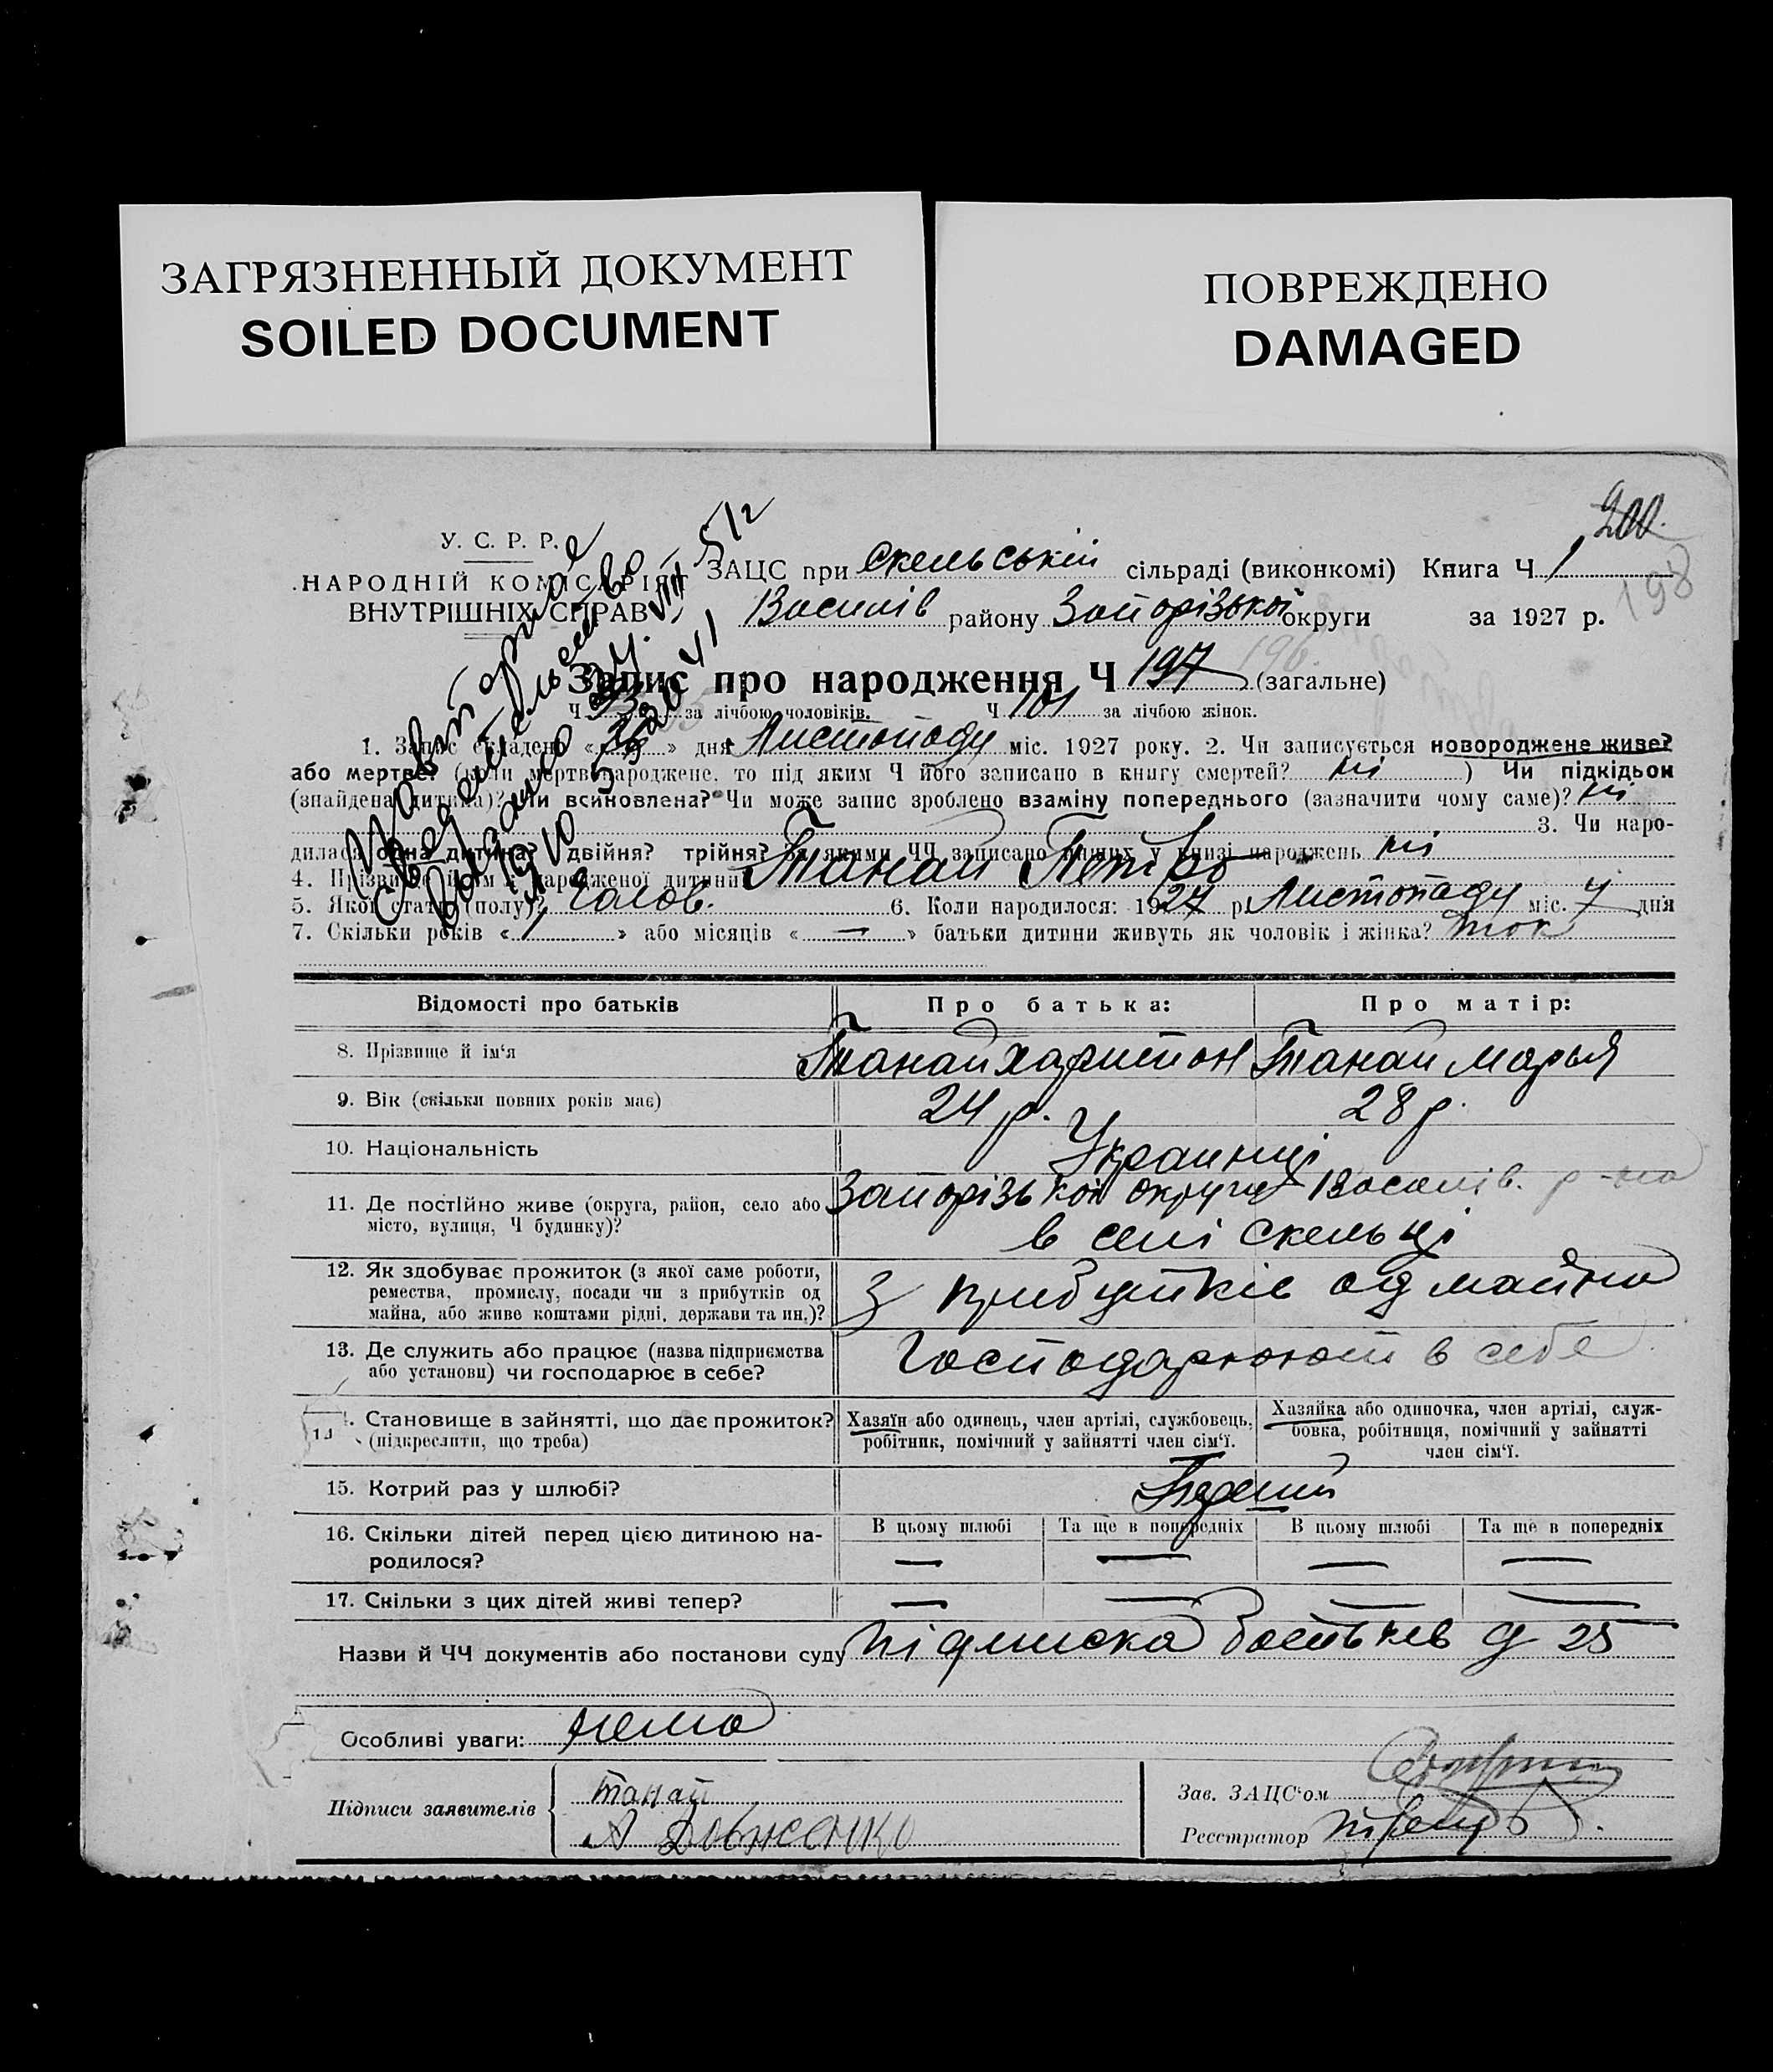 ЗАГРЯЗНЕННЫЙ ДОКУМЕНТ
SOILED DOCUMENT
ПОВРЕЖДЕНО
DAMAGED
200.
198
У. С. Р. Р.
НАРОДНІЙ КОМІСАРІЯТ
ВНУТРІШНІХ СПРАВ
ЗАЦС при Скельській сільраді (виконкомі) Книга Ч 1
Василів району Запорізької округи за 1927 р.
Повторное
свидетельство
выдано
1940
Запис про народження Ч 197 196. (загальне)
Ч за лічбою чоловіків. Ч 101 за лічбою жінок.
1. Запис складено « » дня Листопаду міс. 1927 року. 2. Чи записується новороджене живе?
або мертве? (коли мертвонароджене, то під яким Ч його записано в книгу смертей? ні ) Чи підкідьок
(знайдена дитина)? Чи всиновлена? Чи може запис зроблено взаміну попереднього (зазначити чому саме)? ні
3. Чи наро-
дилася одна дитина? двійня? трійня? За якими ЧЧ записано інших у книзі народжень ні
4. Прізвище й ім'я народженої дитини Танай Петро
5. Якої статі (полу)? Чолов. 6. Коли народилося: 1927 р. Листопаду міс. 7 дня
7. Скільки років « 1 » або місяців « — » батьки дитини живуть як чоловік і жінка? так
Відомості про батьків Про батька: Про матір:
8. Прізвище й ім'я Танай Харитон Танай Марья
9. Вік (скільки повних років має) 24 р. 28 р.
10. Національність Украинці
11. Де постійно живе (округа, район, село або місто, вулиця, Ч будинку)? Запорізької округи Василів. р-на
в селі Скельці
12. Як здобуває прожиток (з якої саме роботи,
ремества, промислу, посади чи з прибутків од
майна, або живе коштами рідні, держави та ин.)? З прибутків од майна
13. Де служить або працює (назва підприємства
або установи) чи господарює в себе? Господарюют в себе
14. Становище в зайнятті, що дає прожиток?
(підкреслити, що треба)
Хазяїн або одинець, член артілі, службовець,
робітник, помічний у зайнятті член сім'ї.
Хазяйка або одиночка, член артілі, служ-
бовка, робітниця, помічний у зайнятті
член сім'ї.
15. Котрий раз у шлюбі? Первий
16. Скільки дітей перед цією дитиною на-
родилося?
В цьому шлюбі Та ще в попередніх В цьому шлюбі Та ще в попередніх
— — — —
17. Скільки з цих дітей живі тепер? — — — —
Назви й ЧЧ документів або постанови суду підписка батьків д 25
Особливі уваги: нема
Підписи заявителів Танай
А Довженко
Зав. ЗАЦС'ом
Реєстратор